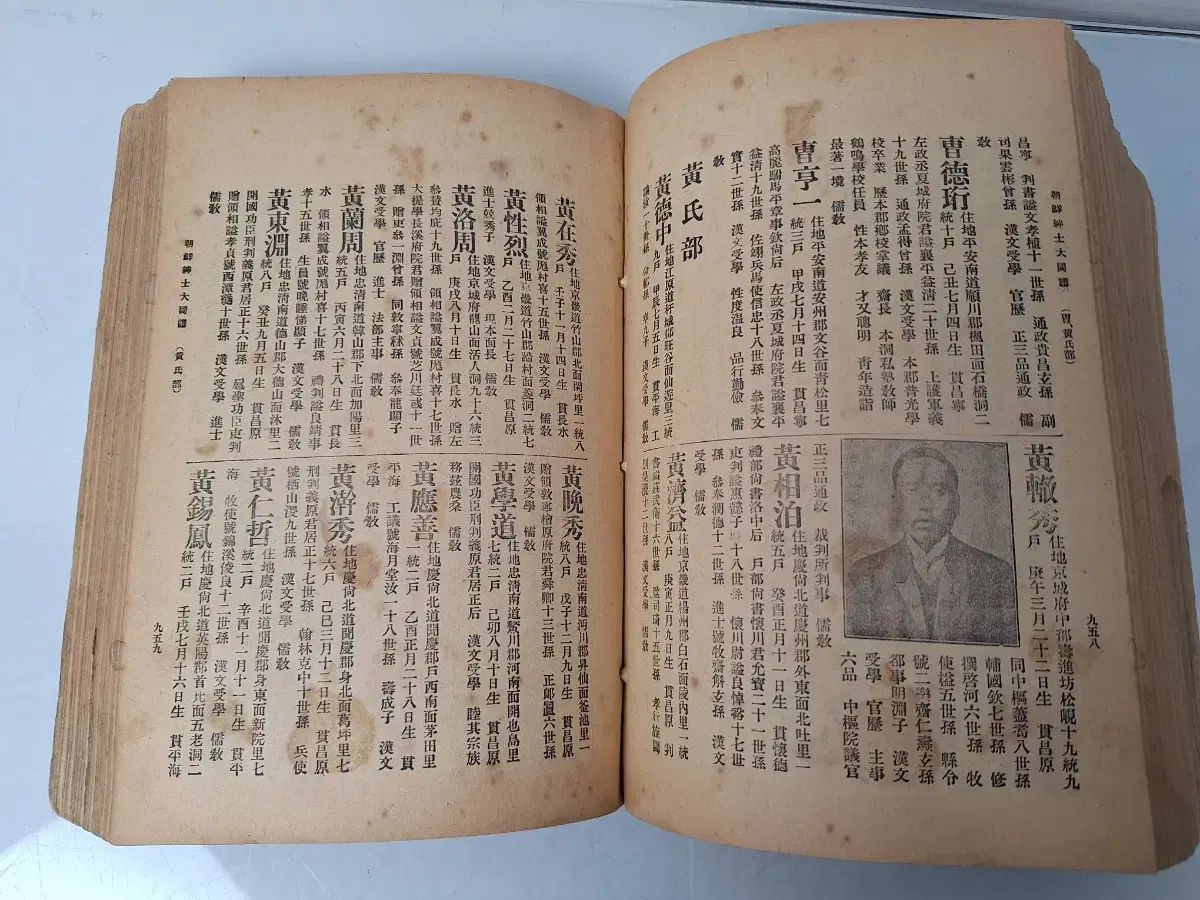 朝鮮紳士大同譜
昌寧 判書諡文孝植十一世孫 通政貴昌玄孫 副
司果雲彬曾孫 漢文受學 官歷 正三品通政 儒
敎
曺德珩
住地平安南道順川郡楓田面石橋洞二
統十戶 己丑七月四日生 貫昌寧
左政丞夏城府院君諡襄平益淸二十世孫 上護軍義
十九世孫 通政孟得曾孫 漢文受學 本郡普光學
校卒業 歷本郡鄕校掌議 齋長 本洞私塾敎師
鶴鳴學校任員 性本孝友 才又聰明 靑年造詣
最著一境 儒敎
曺亨一
住地平安南道安州郡文谷面靑松里七
統三戶 甲戌七月十四日生 貫昌寧
高麗駙馬平章事欽尙后 左政丞夏城府院君諡襄平
益淸十九世孫 佐翊兵馬使信忠十八世孫 參奉文
實十二世孫 漢文受學 性度溫良 品行勤儉 儒
敎
黃氏部
黃德中
住地江原道杆城郡旺谷面仙遊里三統
九戶 甲辰七月五日生 貫平海 工
漢文受學 儒敎
黃轍秀
住地京城府中部壽進坊松峴十九統九
戶 庚午三月二十二日生 貫昌原
同中樞藎喬八世孫
輔國欽七世孫 修
撰啓河六世孫 牧
使榏五世孫 縣令
號二樂齋仁燾玄孫
都事明淵子 漢文
受學 官歷 主事
六品 中樞院議官
正三品通政 裁判所判事 儒敎
黃相泊
住地慶尙北道慶州郡外東面北吐里一
統五戶 癸酉正月十一日生 貫懷德
禮部尙書洛中后 戶部尙書懷川君允寶二十一世孫
吏判諡惠懿子 十八世孫 懷川尉諡良悼 十七世
孫 參奉潤德十二世孫 進士號牧齋斛玄孫 漢文
受學 儒敎
黃濟益
住地京畿道楊州郡白石面陵內里一統
八戶 庚寅正月九日生 貫昌原 判
十六世孫 監司琦十五世孫 孝行旌閭
漢文受學 儒敎
九五八
黃在秀
住地京畿道竹山郡北面閑坪里一統八
戶 壬子十一月十四日生 貫長水
領相諡翼成號厖村喜十五世孫 漢文受學 儒敎
黃性烈
住地京畿道竹山郡諡村面菱洞二統七
戶 乙酉二月二十七日生 貫昌原
進士兢秀子 漢文受學 現本面長 儒敎
黃洛周
住地京城府龍山面西活人洞九十六統三
戶 庚戌八月十日生 貫長水 贈左
參贊均庇十九世孫 領相諡翼成號厖村喜十七世孫
大提學長溪府院君贈領相諡文貞號芝川廷彧十一世
孫 贈吏參一淵曾孫 同敦寧秫孫 參奉龍顯子
漢文受學 官歷 進士 法部主事 儒敎
黃蘭周
住地忠淸南道韓山郡下北面加陽里三
統五戶 丙寅六月二十八日生 貫長
水 領相諡翼成號厖村喜十七世孫 禮判諡良靖事
孝十五世孫 生員號晚睡悌顯子 漢文受學 儒敎
黃東淵
住地忠淸南道德山郡大德山面沐里二
統八戶 癸丑九月五日生 貫昌原
開國功臣刑判義原君居正十六世孫 扈聖功臣吏判
贈領相諡孝貞號西潭 十世孫 漢文受學 進士
儒敎
黃晩秀
住地忠淸南道沔川郡昇仙面釜池里一
統八戶 戊子十二月九日生 貫昌原
贈領敦寧檜原府院君舜卿十三世孫 正郞 六世孫
漢文受學 儒敎
黃學道
住地忠淸南道鰲川郡河南面開也島里
七統二戶 己卯八月十日生 貫昌原
開國功臣刑判義原君居正后 漢文受學 睦其宗族
務玆農桑 儒敎
黃應善
住地慶尙北道聞慶郡戶西南面茅田里
一統二戶 乙酉正月二十八日生 貫
平海 工議號海月堂汝一十八世孫 壽成子 漢文
受學 儒敎
黃澣秀
住地慶尙北道聞慶郡身北面葛坪里七
統六戶 己巳三月十二日生 貫昌原
刑判義原君居正十七世孫 翰林克中十世孫 兵使
號栖山 九世孫 漢文受學 儒敎
黃仁哲
住地慶尙北道聞慶郡身東面新院里七
統二戶 辛酉十一月十一日生 貫平
海 牧使號錦溪俊良十二世孫 漢文受學 儒敎
黃錫鳳
住地慶尙北道英陽郡首比面五老洞二
統二戶 壬戌七月十六日生 貫平海
朝鮮紳士大同譜 (黃氏部)
九五九